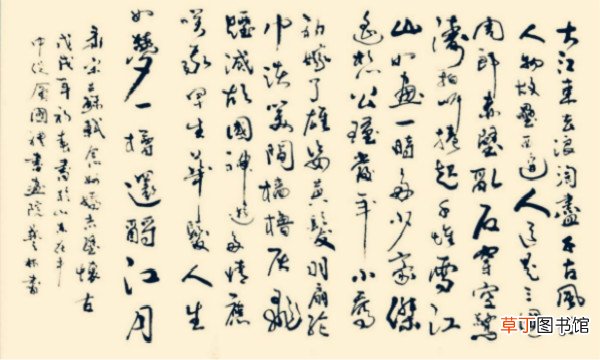 大江東去浪淘盡千古風
人物故壘西邊人道是三國
周郎赤壁亂石穿空驚
濤拍岸捲起千堆雪江
山如畫一時多少豪傑
遙想公瑾當年小喬
初嫁了雄姿英發羽扇綸
巾談笑間檣櫓灰飛
煙滅故國神遊多情應
笑我早生華髮人生
如夢一樽還酹江月
錄宋蘇軾念奴嬌赤壁懷古
戊戌年初春書於山東
國禮書畫院 書
草丁图书馆
www.cd13.com